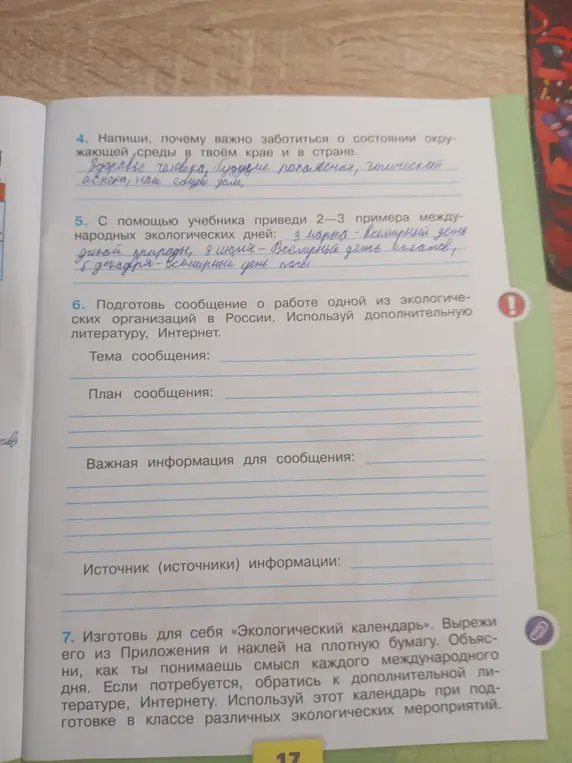 4. Напиши, почему важно заботиться о состоянии окру-
жающей среды в твоём крае и в стране.
Здоровье человека, будущие поколения, этический
аспект, наш общий дом.
5. С помощью учебника приведи 2—3 примера между-
народных экологических дней: 3 марта - Всемирный день
дикой природы, 8 июня - Всемирный день океанов,
5 декабря - всемирный день почв
6. Подготовь сообщение о работе одной из экологиче-
ских организаций в России. Используй дополнительную
литературу, Интернет.
Тема сообщения:
План сообщения:
Важная информация для сообщения:
Источник (источники) информации:
7. Изготовь для себя «Экологический календарь». Вырежи
его из Приложения и наклей на плотную бумагу. Объяс-
ни, как ты понимаешь смысл каждого международного
дня. Если потребуется, обратись к дополнительной ли-
тературе, Интернету. Используй этот календарь при под-
готовке в классе различных экологических мероприятий.
17